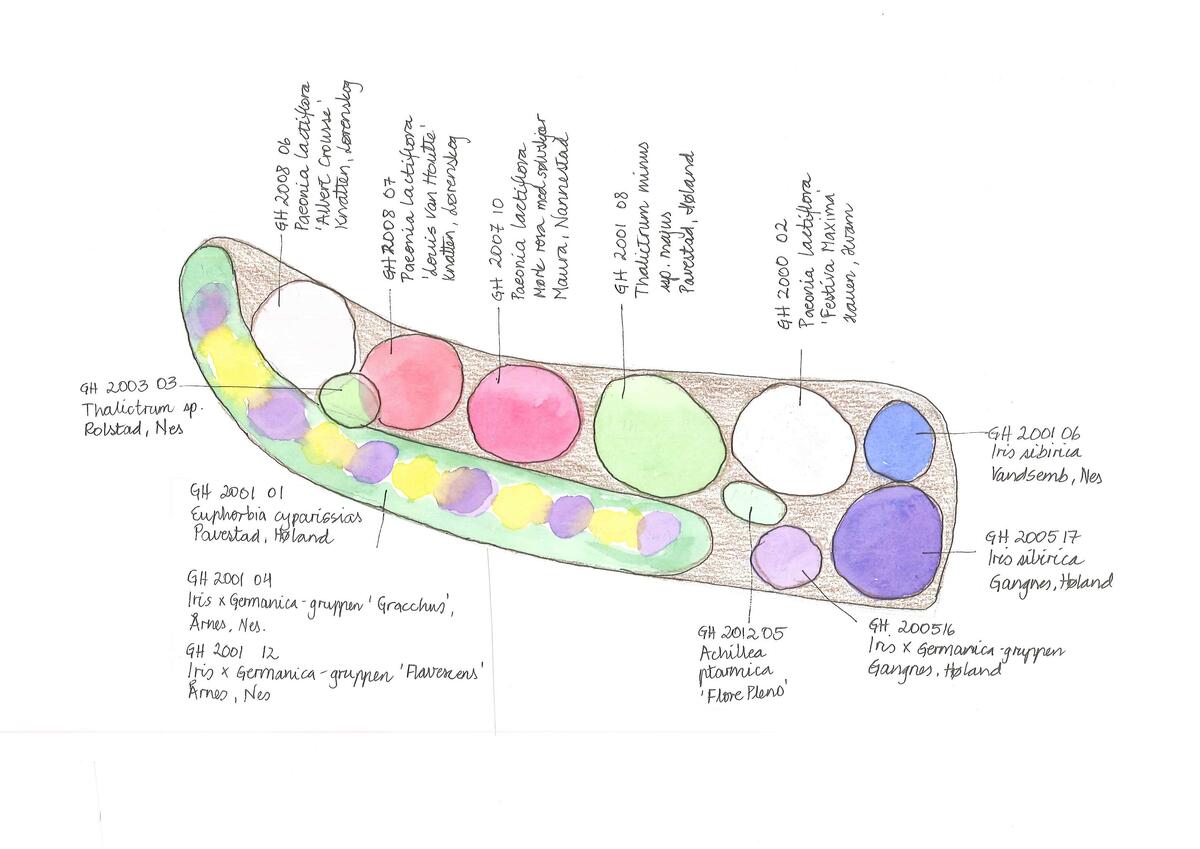 GH 2008 06
Paeonia lactiflora
'Albert Crousse'
Knatten, Lørenskog
GH 2008 07
Paeonia lactiflora
'Louis Van Houtte'
Knatten, Lørenskog
GH 2007 10
Paeonia lactiflora
Mørk rosa med sølvskjær
Maura, Nannestad
GH 2001 08
Thalictrum minus
sp. majus
Pavestad, Høland
GH 2000 02
Paeonia lactiflora
'Festiva Maxima'
Haven, Hvam
GH 2003 03
Thalictrum sp.
Rolstad, Nes
GH 2001 06
Iris sibirica
Vandsemb, Nes
GH 2001 01
Euphorbia cyparissias
Pavestad, Høland
GH 2005 17
Iris sibirica
Gangnes, Høland
GH 2001 04
Iris x Germanica-gruppen 'Gracchus',
Årnes, Nes.
GH 2001 12
Iris x Germanica-gruppen 'Flavescens'
Årnes, Nes
GH 2012 05
Achillea
ptarmica
'Flore Pleno'
GH. 2005 16
Iris x Germanica-gruppen
Gangnes, Høland